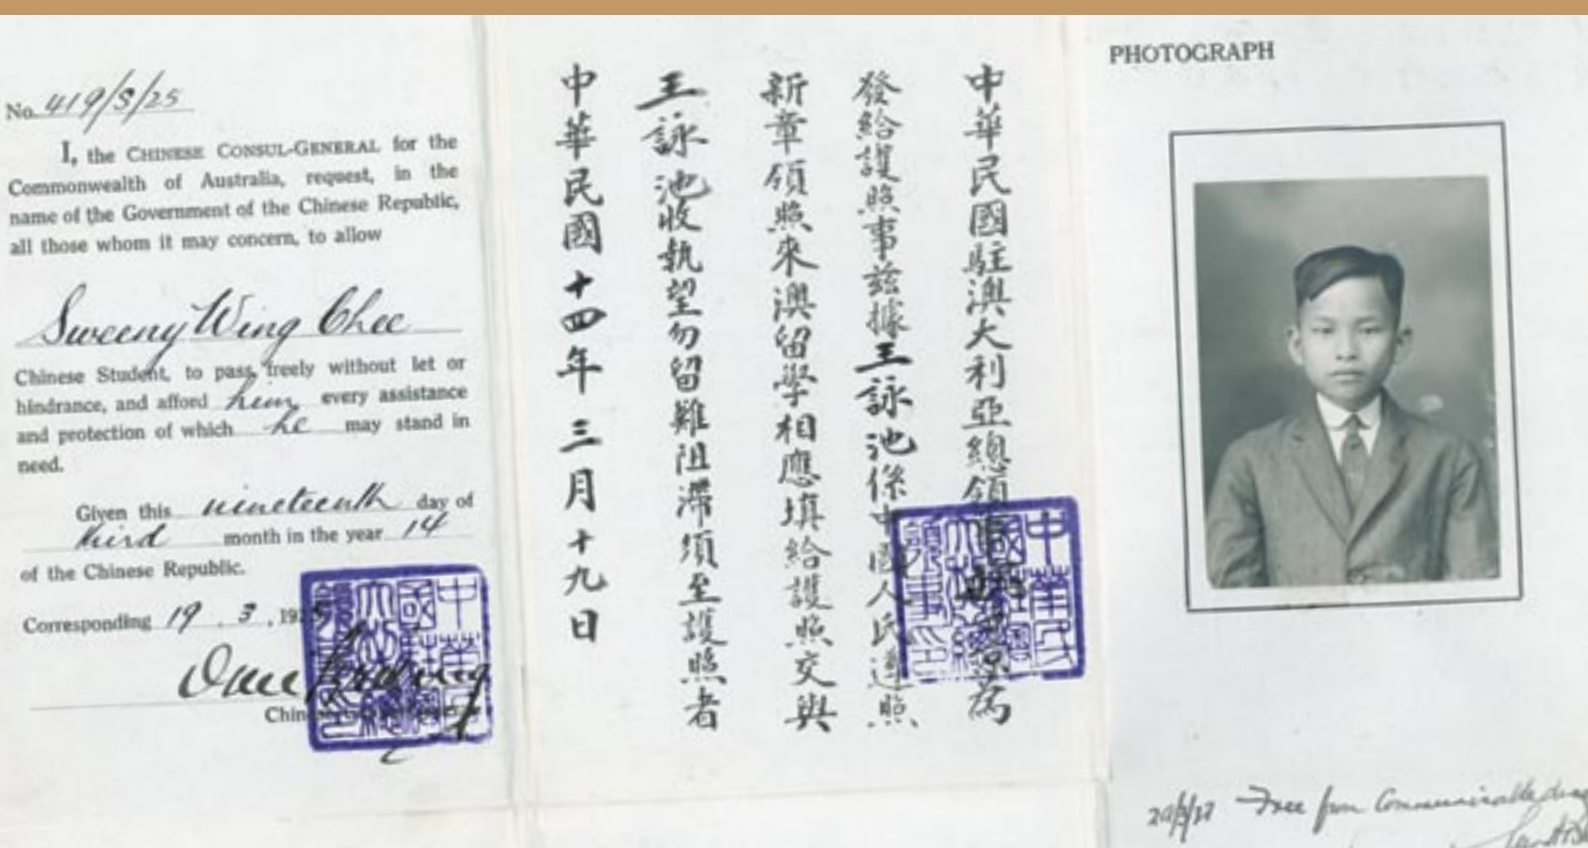 No. 419/S/25
I, the CHINESE CONSUL-GENERAL for the
Commonwealth of Australia, request, in the
name of the Government of the Chinese Republic,
all those whom it may concern, to allow
Sweeny Wing Chee
Chinese Student, to pass freely without let or
hindrance, and afford him every assistance
and protection of which he may stand in
need.
Given this nineteenth day of
third month in the year 14
of the Chinese Republic.
Corresponding 19 . 3 , 192
中華民國駐澳大利亞總領事 為
發給護照事茲據王詠池係中國人民遵照
新章領照來澳留學相應填給護照交與
王詠池收執望勿留難阻滯須至護照者
中華民國十四年三月十九日
PHOTOGRAPH
Free from Communicable